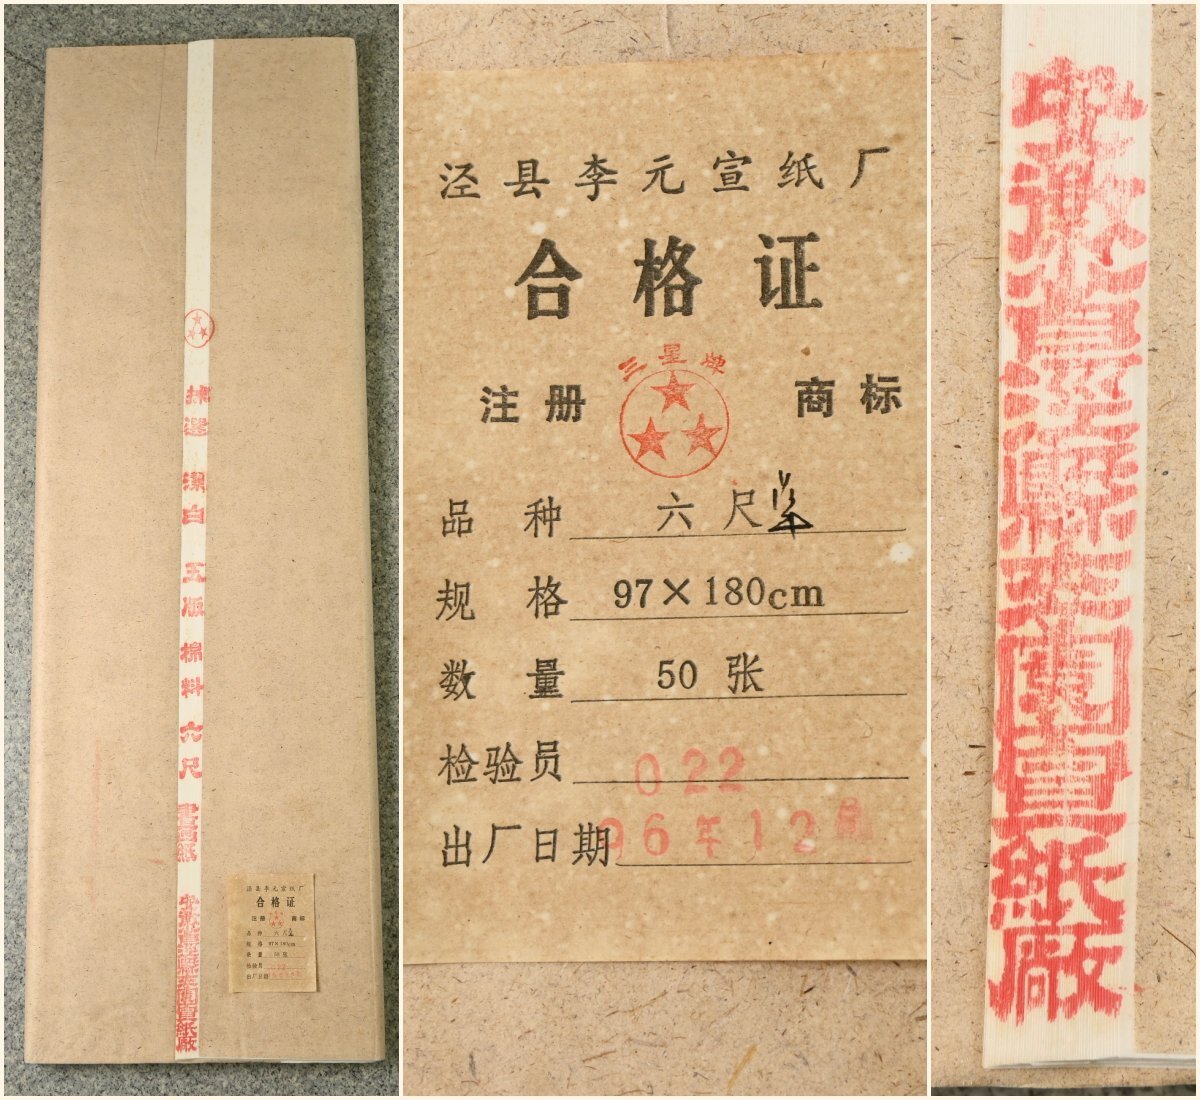 挑選 潔白 玉版 棉料 六尺 書画紙
泾县李元宣纸厂
合格证
注册 商标
品种 六尺
规格 97×180cm
数量 50张
检验员 022
出厂日期 96年12月
泾县李元宣纸厂
合格证
三星牌
注册 商标
品种 六尺单
规格 97×180cm
数量 50张
检验员 022
出厂日期 96年12月
宣紙廠